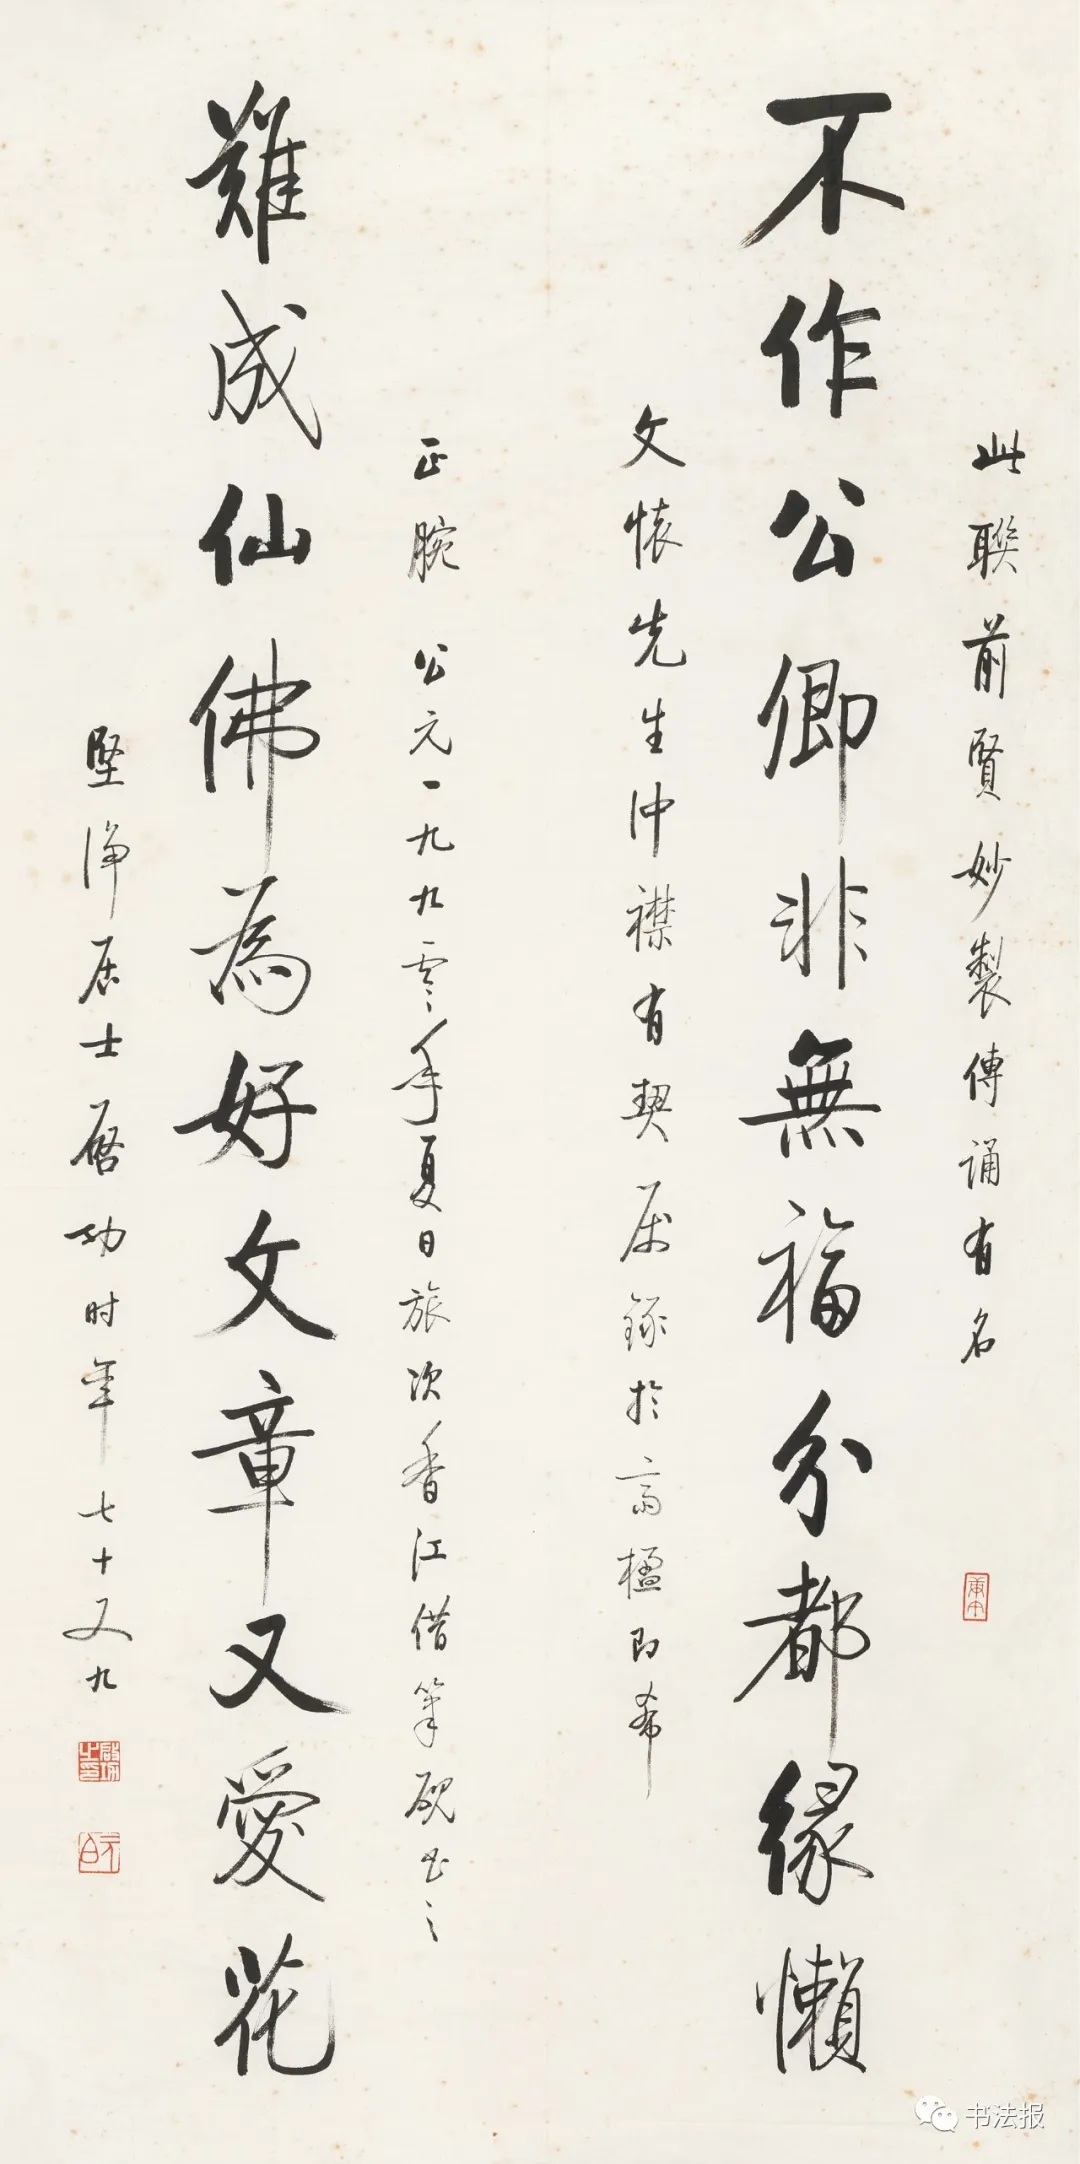 此聯前賢妙製傳誦有名
不作公卿非無福分都緣懶
文懷先生沖襟有契属録於高楹即希
正腕 公元一九九零年夏日旅次香江借筆硯書之
難成仙佛為好文章又愛花
堅淨居士啓功时年七十又九
啟功之印
元白
书法报